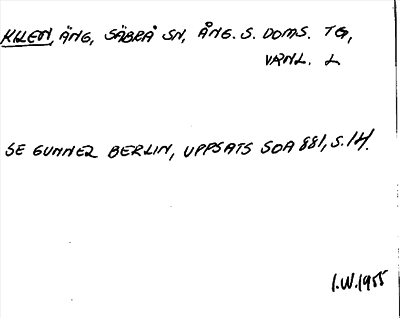 KILEN, ÄNG, SÄBRÅ SN, ÅNG. S. DOMS. TG,
VRNL. L
SE GUNNEL BERLIN, UPPSATS SOA 881, S.14.
I.W.1955